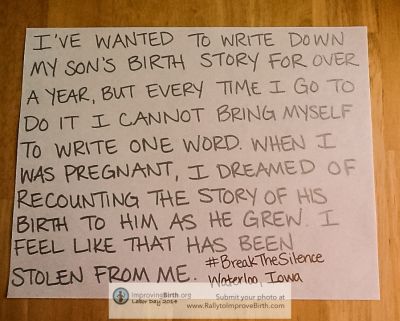 I'VE WANTED TO WRITE DOWN
MY SON'S BIRTH STORY FOR OVER
A YEAR, BUT EVERY TIME I GO TO
DO IT I CANNOT BRING MYSELF
TO WRITE ONE WORD. WHEN I
WAS PREGNANT, I DREAMED OF
RECOUNTING THE STORY OF HIS
BIRTH TO HIM AS HE GREW. I
FEEL LIKE THAT HAS BEEN
STOLEN FROM ME. #BreakTheSilence
Waterloo, Iowa
ImprovingBirth.org
Labor Day 2014
Submit your photo at
www.RallytoImproveBirth.com